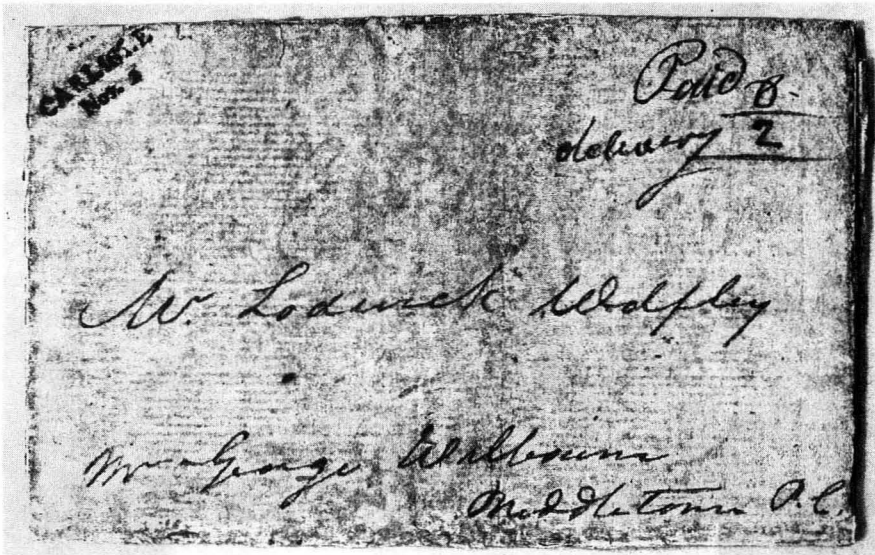 CARLISLE
Nov. 4
Paid 8
delivery 2
Mr. Lodwick Wolfley
Mr George
Middletown P.C.